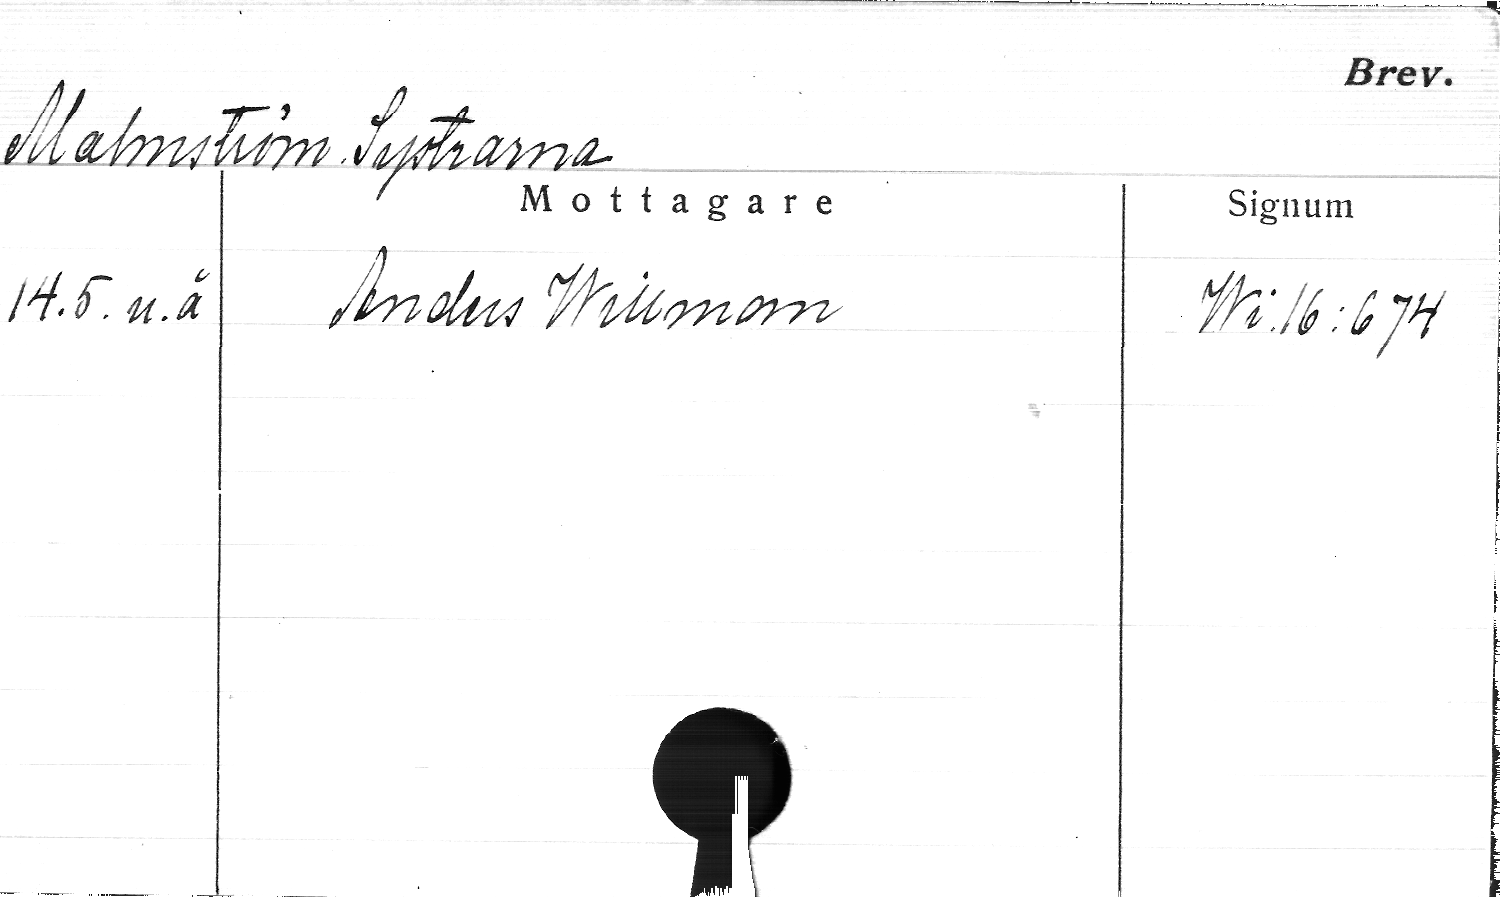 Brev.
Malmström. Systrarna
Mottagare
Signum
14.5. u.å
Anders Willman
Wi:16:674